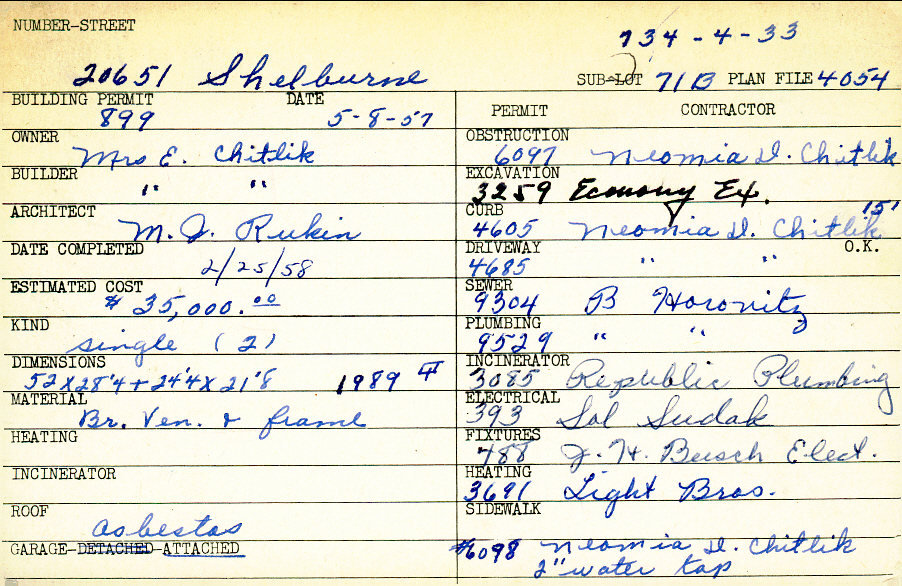 NUMBER-STREET
734-4-33
20651 Shelburne
SUB-LOT 71B PLAN FILE 4054
BUILDING PERMIT DATE
899 5-8-57
OWNER
Mrs E. Chitlik
BUILDER
" "
ARCHITECT
M. J. Rukin
DATE COMPLETED
2/25/58
ESTIMATED COST
$35,000.00
KIND
single (2)
DIMENSIONS
52 x 28'4 + 24'4 x 21'8 1989
MATERIAL
Br. Ven. & frame
HEATING
INCINERATOR
ROOF
asbestos
GARAGE-DETACHED-ATTACHED
PERMIT CONTRACTOR
OBSTRUCTION
6097 Neomia D. Chitlik
EXCAVATION
3259 Economy Ex.
CURB 15'
4605 Neomia D. Chitlik
DRIVEWAY O.K.
4685 " "
SEWER
9304 B Horovitz
PLUMBING
9529 " "
INCINERATOR
3085 Republic Plumbing
ELECTRICAL
393 Sol Sudak
FIXTURES
488 J. H. Busch Elect.
HEATING
3691 Light Bros.
SIDEWALK
#6098 Neomia D. Chitlik
2" water tap